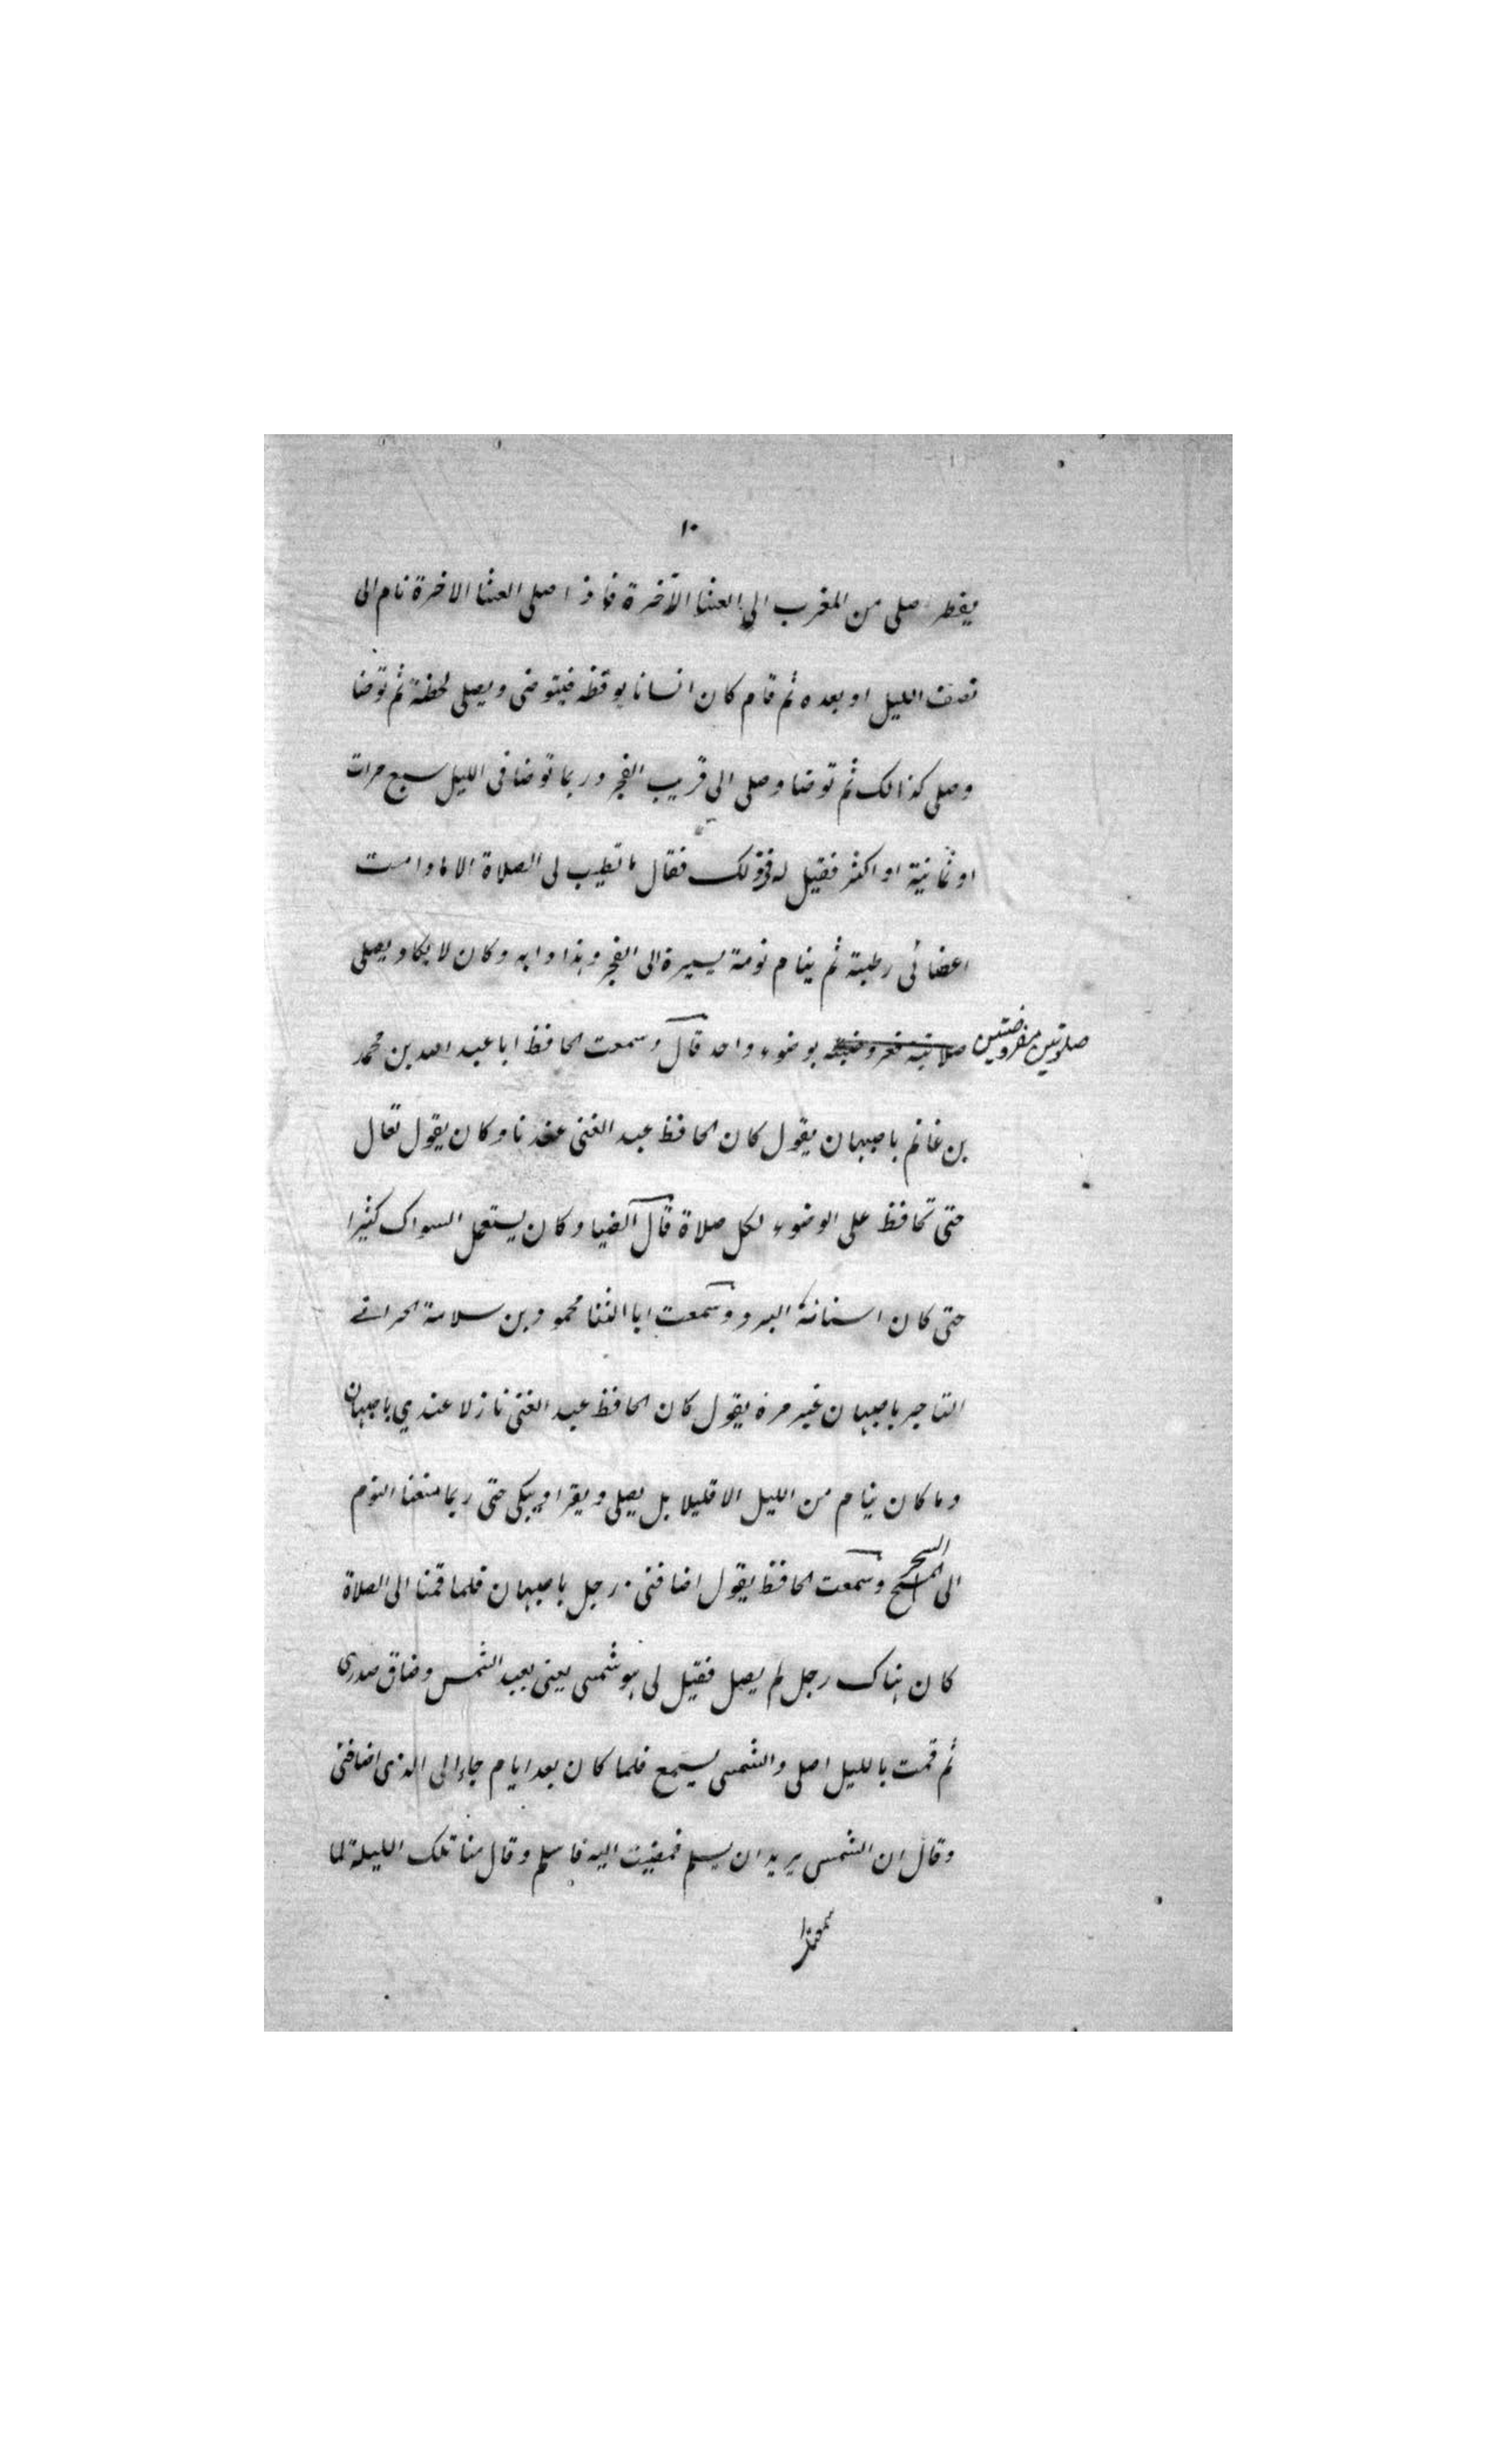 ١٠
يفطر صلى من المغرب الى العشا الآخرة فاذا صلى العشا الاخرة نام الى
نصف الليل او بعده ثم قام كان انسانا يوقظه فيتوضى ويصلى لحظة ثم توضا
وصلى كذالك ثم توضا وصلى الى قريب الفجر وربما توضا فى الليل سبع مرات
او ثمانية او اكثر فقيل له فى ذلك فقال ما تطيب لى الصلاة الا ما دامت
اعضائى رطبة ثم ينام نومة يسيرة الى الفجر وهذا دابه وكان لا يكاد يصلى
صلوتين مفروضتين بوضوء واحد قال وسمعت الحافظ ابا عبد الله بن محمد
بن غانم باصبهان يقول كان الحافظ عبد الغنى عندنا وكان يقول تعال
حتى تحافظ على الوضوء لكل صلاة قال الضيا وكان يستعمل السواك كثيرا
حتى كان اسنانه البرد وسمعت ابا الثنا محمود بن سلامة الحرانے
التاجر باصبهان غير مرة يقول كان الحافظ عبد الغنى نازلا عندي باصبهان
وما كان ينام من الليل الا قليلا بل يصلى ويقرا ويبكى حتى ربما منعنا النوم
الى السحر وسمعت الحافظ يقول اضافنى رجل باصبهان فلما قمنا الى الصلاة
كان هناك رجل لم يصل فقيل لى هو شمسى يعنى يعبد الشمس وضاق صدرى
ثم قمت بالليل اصلى والشمسى يستمع فلما كان بعد ايام جاء الى الذى اضافنى
وقال ان الشمسى يريد ان يسلم فمضيت اليه فاسلم وقال من تلك الليلة لما